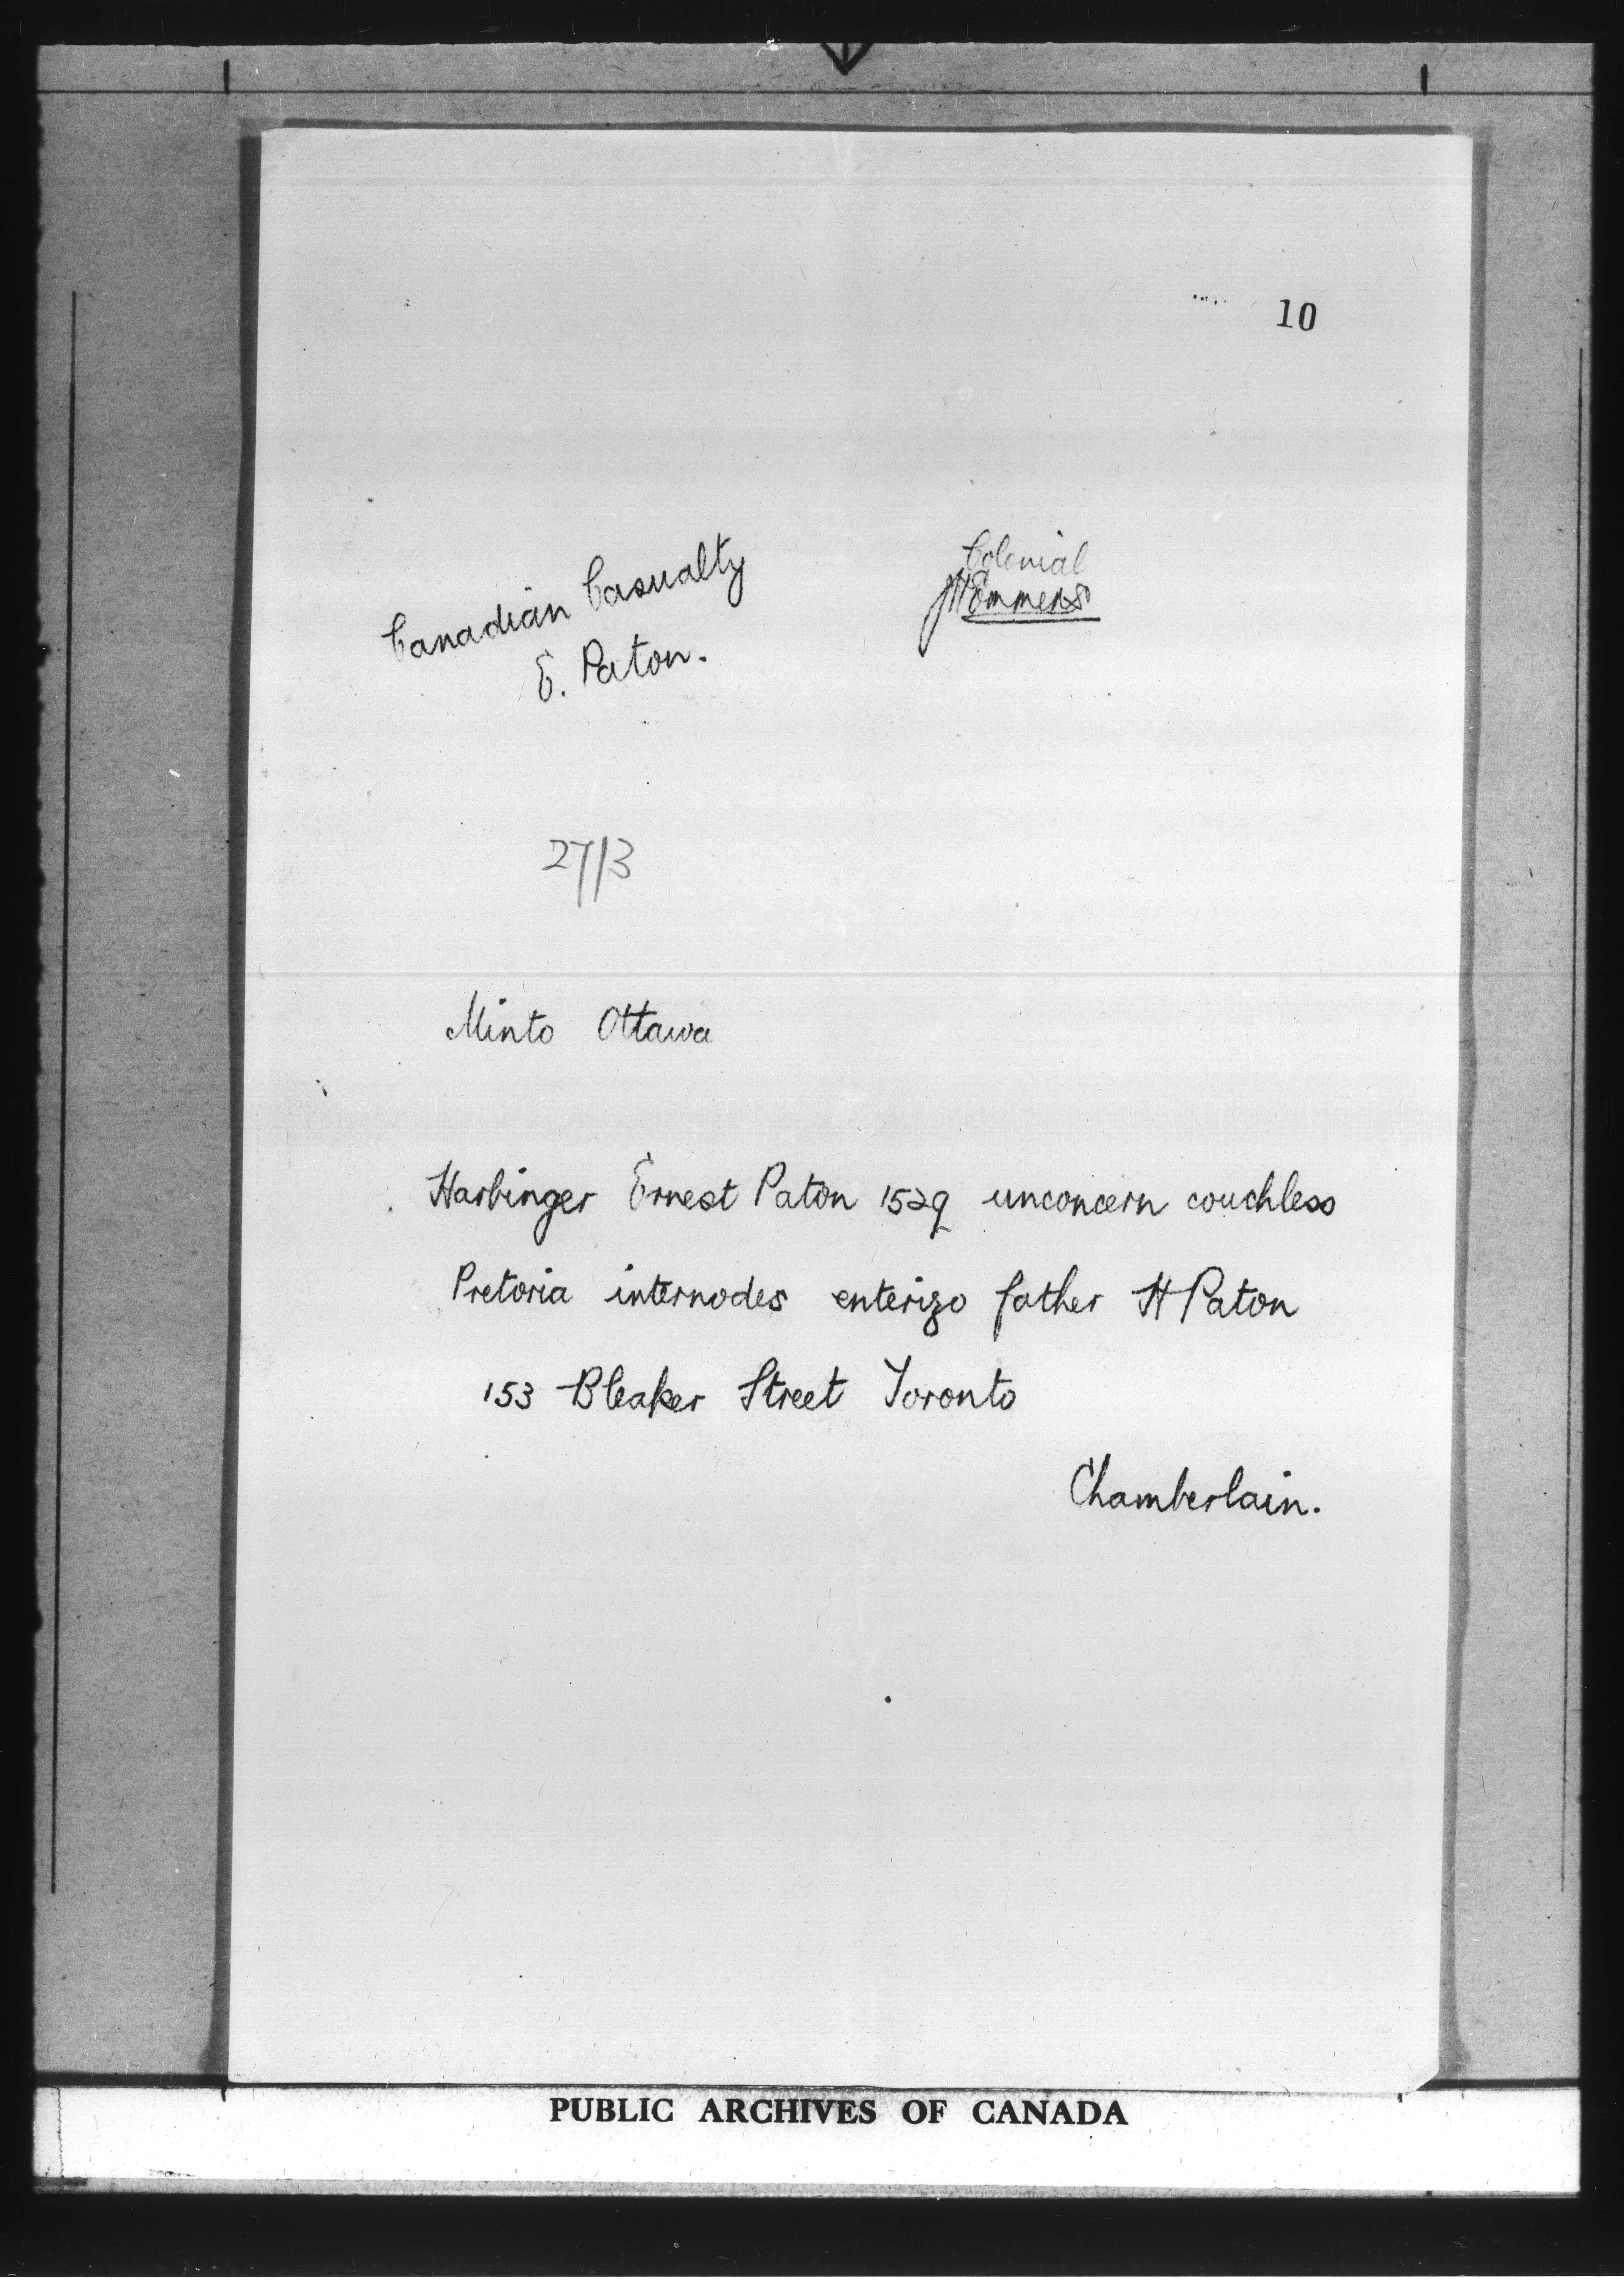 10
Canadian Casualty
E. Paton.
Colonial
27/3
Minto Ottawa
Harbinger Ernest Paton 1529 unconcern couchless
Pretoria internodes enterizo father H Paton
153 Bleaker Street Toronto
Chamberlain.
PUBLIC ARCHIVES OF CANADA